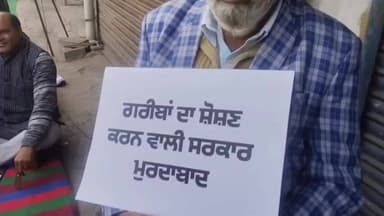 ਗਰੀਬਾਂ ਦਾ ਸ਼ੋਸ਼ਣ
ਕਰਨ ਵਾਲੀ ਸਰਕਾਰ
ਮੁਰਦਾਬਾਦ